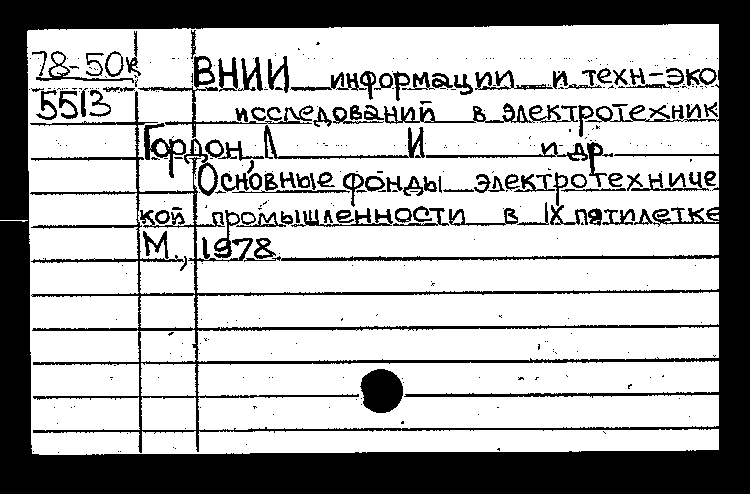 78-50к
5513
ВНИИ информации и техн-эко
исследований в электротехник
Гордон, Л И и др.
Основные фонды электротехниче
кой промышленности в IX пятилетке
М., 1978